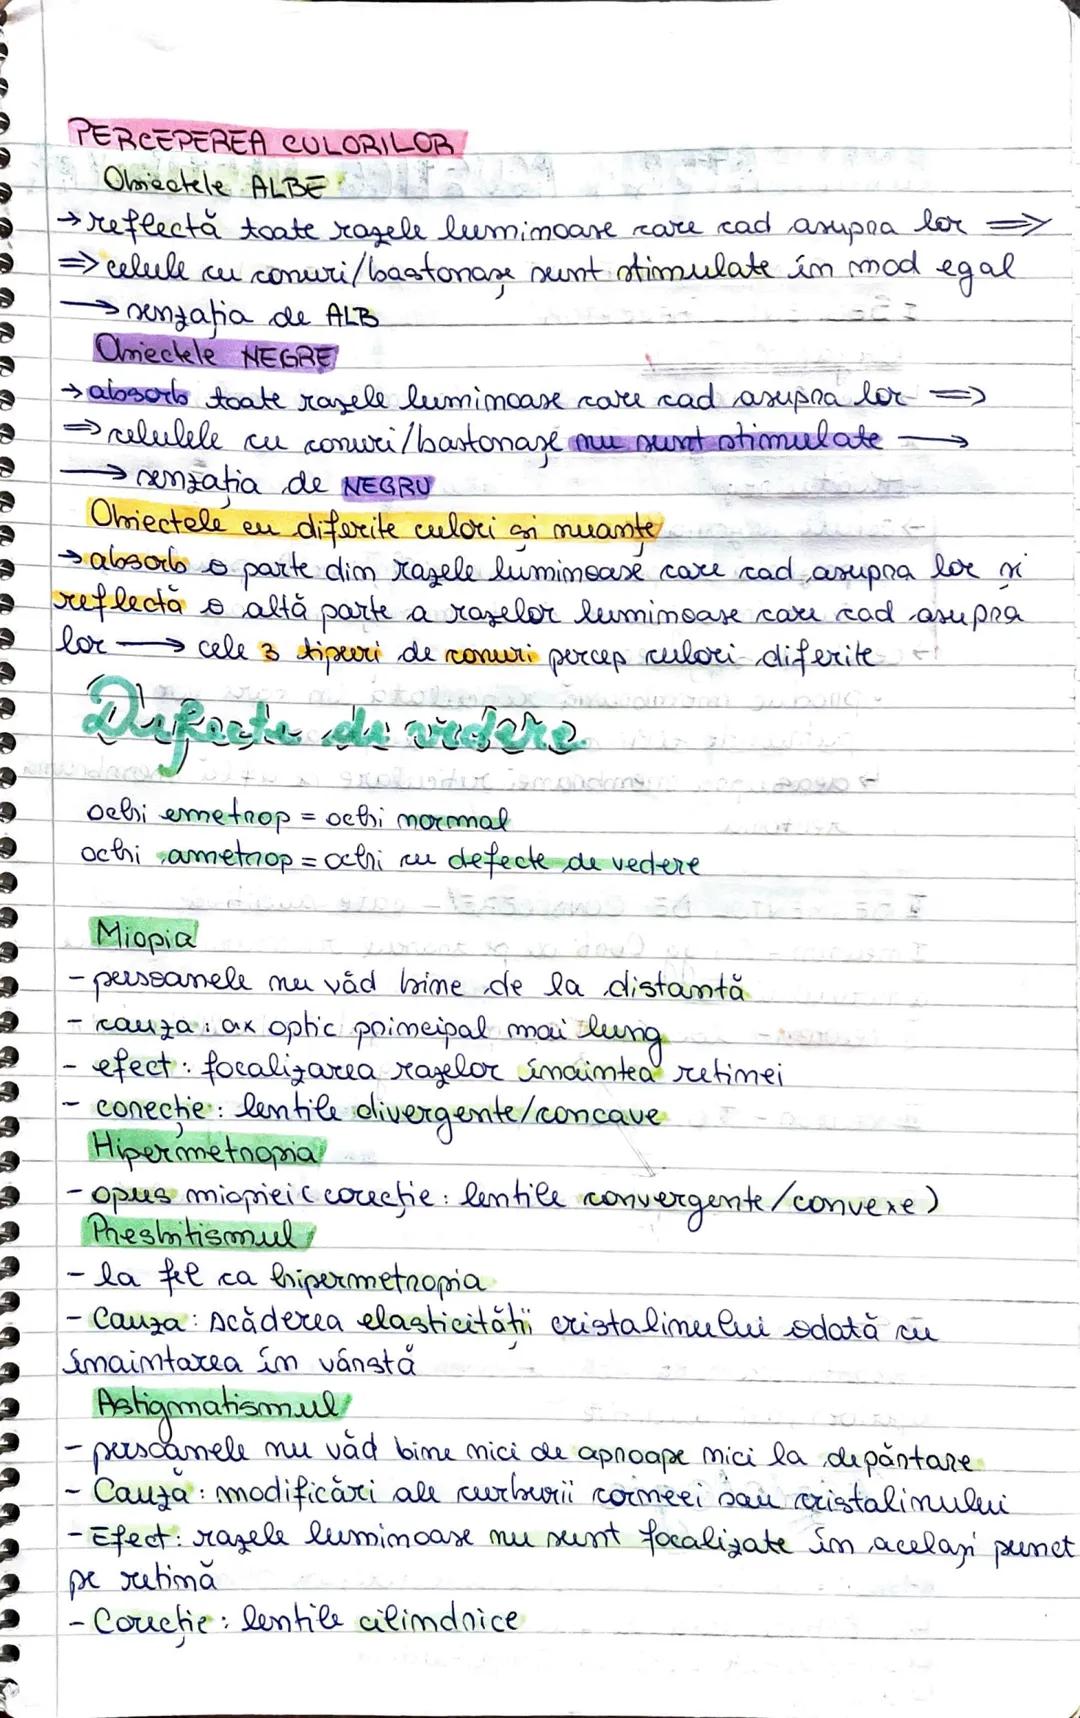 PERCEPEREA CULORILOR
Obiectele ALBE
→ reflectă toate razele luminoase care cad asupra lor ⇒
⇒ celule cu conuri/bastonașe sunt stimulate în mod egal
→ senzația de ALB
Obiectele NEGRE
→ absorb toate razele luminoase care cad asupra lor ⇒
⇒ celulele cu conuri/bastonașe nu sunt stimulate →
→ senzația de NEGRU
Obiectele cu diferite culori și nuanțe
→ absorb o parte din razele luminoase care cad asupra lor și
reflectă o altă parte a razelor luminoase care cad asupra
lor → cele 3 tipuri de conuri percep culori diferite
Defecte de vedere
ochi emetrop = ochi normal
ochi ametrop = ochi cu defecte de vedere
Miopia
- persoanele nu văd bine de la distanță
- cauza: ax optic principal mai lung
- efect: focalizarea razelor înaintea retinei
- corecție: lentile divergente/concave
Hipermetropia
- opus miopiei (corecție: lentile convergente/convexe)
Presbitismul
- la fel ca hipermetropia
- Cauza: scăderea elasticității cristalinului odată cu
înaintarea în vârstă
Astigmatismul
- persoanele nu văd bine nici de aproape nici la depărtare
- Cauza: modificări ale curburii corneei sau cristalinului
- Efect: razele luminoase nu sunt focalizate în același punct
pe retină
- Corecție: lentile cilindrice